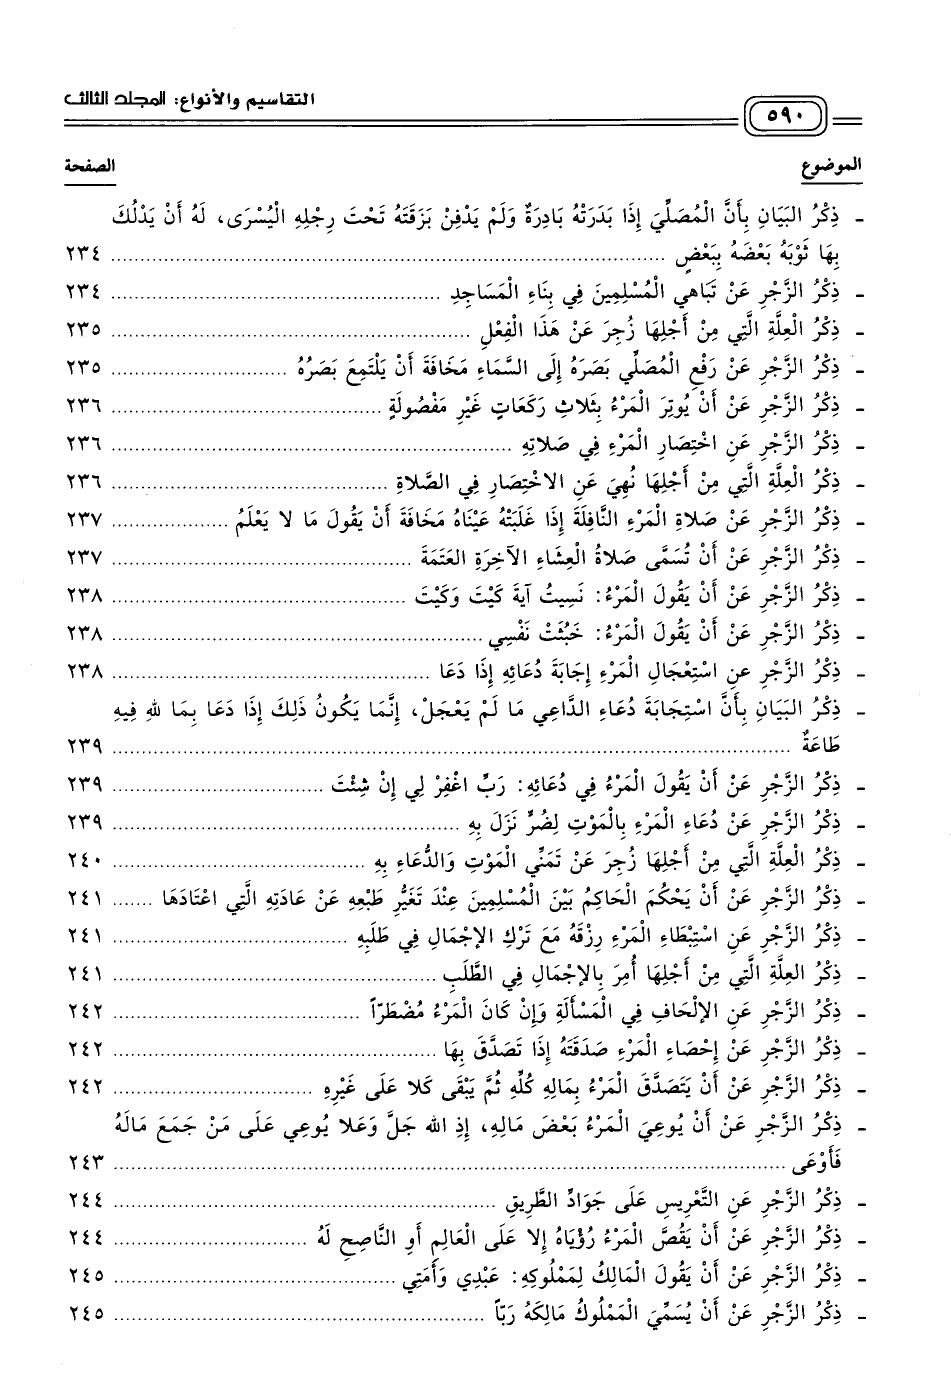 التقاسيم والأنواع: المجلد الثالث
٥٩٠
الموضوع الصفحة
- ذِكْرُ البَيَانِ بِأَنَّ الْمُصَلِّيَ إِذَا بَدَرَتْهُ بَادِرَةٌ وَلَمْ يَدْفِنْ بَزْقَتَهُ تَحْتَ رِجْلِهِ الْيُسْرَى، لَهُ أَنْ يَدْلُكَ
بِهَا ثَوْبَهُ بَعْضَهُ بِبَعْضٍ ........ ٢٣٤
- ذِكْرُ الزَّجْرِ عَنْ تَبَاهِي الْمُسْلِمِينَ فِي بِنَاءِ الْمَسَاجِدِ ........ ٢٣٤
- ذِكْرُ الْعِلَّةِ الَّتِي مِنْ أَجْلِهَا زُجِرَ عَنْ هَذَا الْفِعْلِ ........ ٢٣٥
- ذِكْرُ الزَّجْرِ عَنْ رَفْعِ الْمُصَلِّي بَصَرَهُ إِلَى السَّمَاءِ مَخَافَةَ أَنْ يَلْتَمِعَ بَصَرُهُ ........ ٢٣٥
- ذِكْرُ الزَّجْرِ عَنْ أَنْ يُوتِرَ الْمَرْءُ بِثَلاثِ رَكَعَاتٍ غَيْرِ مَفْصُولَةٍ ........ ٢٣٦
- ذِكْرُ الزَّجْرِ عَنِ اخْتِصَارِ الْمَرْءِ فِي صَلاتِهِ ........ ٢٣٦
- ذِكْرُ الْعِلَّةِ الَّتِي مِنْ أَجْلِهَا نُهِيَ عَنِ الاخْتِصَارِ فِي الصَّلاةِ ........ ٢٣٦
- ذِكْرُ الزَّجْرِ عَنْ صَلاةِ الْمَرْءِ النَّافِلَةَ إِذَا غَلَبَتْهُ عَيْنَاهُ مَخَافَةَ أَنْ يَقُولَ مَا لا يَعْلَمُ ........ ٢٣٧
- ذِكْرُ الزَّجْرِ عَنْ أَنْ تُسَمَّى صَلاةُ الْعِشَاءِ الآخِرَةِ العَتَمَةَ ........ ٢٣٧
- ذِكْرُ الزَّجْرِ عَنْ أَنْ يَقُولَ الْمَرْءُ: نَسِيتُ آيَةَ كَيْتَ وَكَيْتَ ........ ٢٣٨
- ذِكْرُ الزَّجْرِ عَنْ أَنْ يَقُولَ الْمَرْءُ: خَبُثَتْ نَفْسِي ........ ٢٣٨
- ذِكْرُ الزَّجْرِ عنِ اسْتِعْجَالِ الْمَرْءِ إِجَابَةَ دُعَائِهِ إِذَا دَعَا ........ ٢٣٨
- ذِكْرُ البَيَانِ بِأَنَّ اسْتِجَابَةَ دُعَاءِ الدَّاعِي مَا لَمْ يَعْجَلْ، إِنَّمَا يَكُونُ ذَلِكَ إِذَا دَعَا بِمَا للهِ فِيهِ
طَاعَةٌ ........ ٢٣٩
- ذِكْرُ الزَّجْرِ عَنْ أَنْ يَقُولَ الْمَرْءُ فِي دُعَائِهِ: رَبِّ اغْفِرْ لِي إِنْ شِئْتَ ........ ٢٣٩
- ذِكْرُ الزَّجْرِ عَنْ دُعَاءِ الْمَرْءِ بِالْمَوْتِ لِضُرٍّ نَزَلَ بِهِ ........ ٢٣٩
- ذِكْرُ الْعِلَّةِ الَّتِي مِنْ أَجْلِهَا زُجِرَ عَنْ تَمَنِّي الْمَوْتِ وَالدُّعَاءِ بِهِ ........ ٢٤٠
- ذِكْرُ الزَّجْرِ عَنْ أَنْ يَحْكُمَ الْحَاكِمُ بَيْنَ الْمُسْلِمِينَ عِنْدَ تَغَيُّرِ طَبْعِهِ عَنْ عَادَتِهِ الَّتِي اعْتَادَهَا ....... ٢٤١
- ذِكْرُ الزَّجْرِ عَنِ اسْتِبْطَاءِ الْمَرْءِ رِزْقَهُ مَعَ تَرْكِ الإِجْمَالِ فِي طَلَبِهِ ........ ٢٤١
- ذِكْرُ العِلَّةِ الَّتِي مِنْ أَجْلِهَا أُمِرَ بِالإِجْمَالِ فِي الطَّلَبِ ........ ٢٤١
- ذِكْرُ الزَّجْرِ عَنِ الإِلْحَافِ فِي الْمَسْأَلَةِ وَإِنْ كَانَ الْمَرْءُ مُضْطَرّاً ........ ٢٤٢
- ذِكْرُ الزَّجْرِ عَنْ إِحْصَاءِ الْمَرْءِ صَدَقَتَهُ إِذَا تَصَدَّقَ بِهَا ........ ٢٤٢
- ذِكْرُ الزَّجْرِ عَنْ أَنْ يَتَصَدَّقَ الْمَرْءُ بِمَالِهِ كُلِّهِ ثُمَّ يَبْقَى كَلا عَلَى غَيْرِهِ ........ ٢٤٢
- ذِكْرُ الزَّجْرِ عَنْ أَنْ يُوعِيَ الْمَرْءُ بَعْضَ مَالِهِ، إِذِ الله جَلَّ وَعَلا يُوعِي عَلَى مَنْ جَمَعَ مَالَهُ
فَأَوْعَى ........ ٢٤٣
- ذِكْرُ الزَّجْرِ عَنِ التَّعْرِيسِ عَلَى جَوَادِّ الطَّرِيقِ ........ ٢٤٤
- ذِكْرُ الزَّجْرِ عَنْ أَنْ يَقُصَّ الْمَرْءُ رُؤْيَاهُ إِلا عَلَى الْعَالِمِ أَوِ النَّاصِحِ لَهُ ........ ٢٤٤
- ذِكْرُ الزَّجْرِ عَنْ أَنْ يَقُولَ الْمَالِكُ لِمَمْلُوكِهِ: عَبْدِي وَأَمَتِي ........ ٢٤٥
- ذِكْرُ الزَّجْرِ عَنْ أَنْ يُسَمِّيَ الْمَمْلُوكُ مَالِكَهُ رَبّاً ........ ٢٤٥